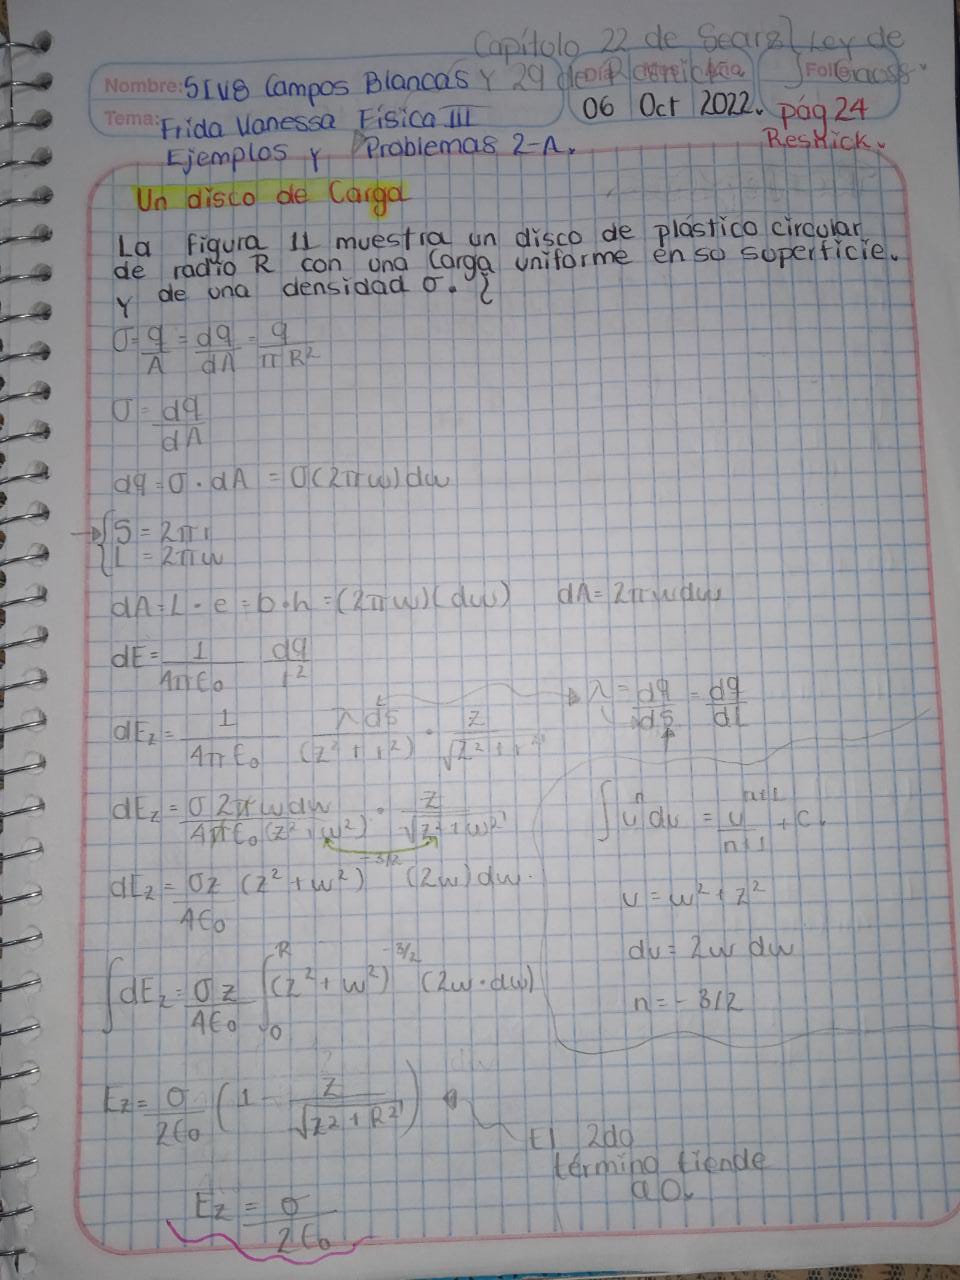 Capítulo 22 de Sears} Ley de
Nombre: 5IV8 Campos Blancas Y 29 de Resnick Gauss.
06 Oct 2022. pág 24
Tema: Frida Vanessa Física III Resnick.
Ejemplos y Problemas 2-A.
Un disco de Carga
La figura 11 muestra un disco de plástico circular
de radio R con una Carga uniforme en so superficie.
Y de una densidad σ.
σ = q/A = dq/dA = q/πR²
σ = dq/dA
dq = σ · dA = σ(2πw)dw
S = 2πr
L = 2πw
dA = L · e = b·h = (2πw)(dw) dA = 2πwdw
dE = 1/4πε₀ dq/r²
dEz = 1/4πε₀ λds/(z² + r²) · z/√z² + r² λ = dq/ds = dq/dL
dEz = σ2πwdw/4πε₀(z² + w²) · z/√z² + w² ∫uⁿdu = uⁿ⁺¹/n+1 + C.
dEz = σz/4ε₀ (z² + w²)^-3/2 (2w)dw. u = w² + z²
du = 2w dw
∫dEz = σz/4ε₀ ∫₀ᴿ (z² + w²)^-3/2 (2w·dw) n = -3/2
Ez = σ/2ε₀ (1 - z/√z² + R²)
El 2do
término tiende
a 0.
Ez = σ/2ε₀